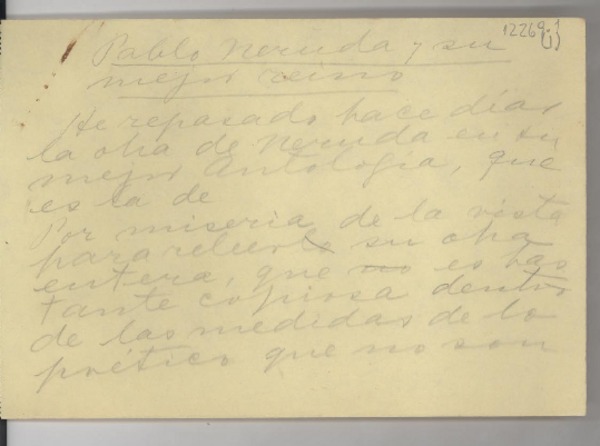 12269(1)
Pablo Neruda y su
mejor reino
He repasado hace días
la obra de Neruda en su
mejor Antología, que
es la de
Por miseria de la vista
para releer su obra
entera, que no es bas
tante copiosa dentro
de las medidas de lo
poético que no son